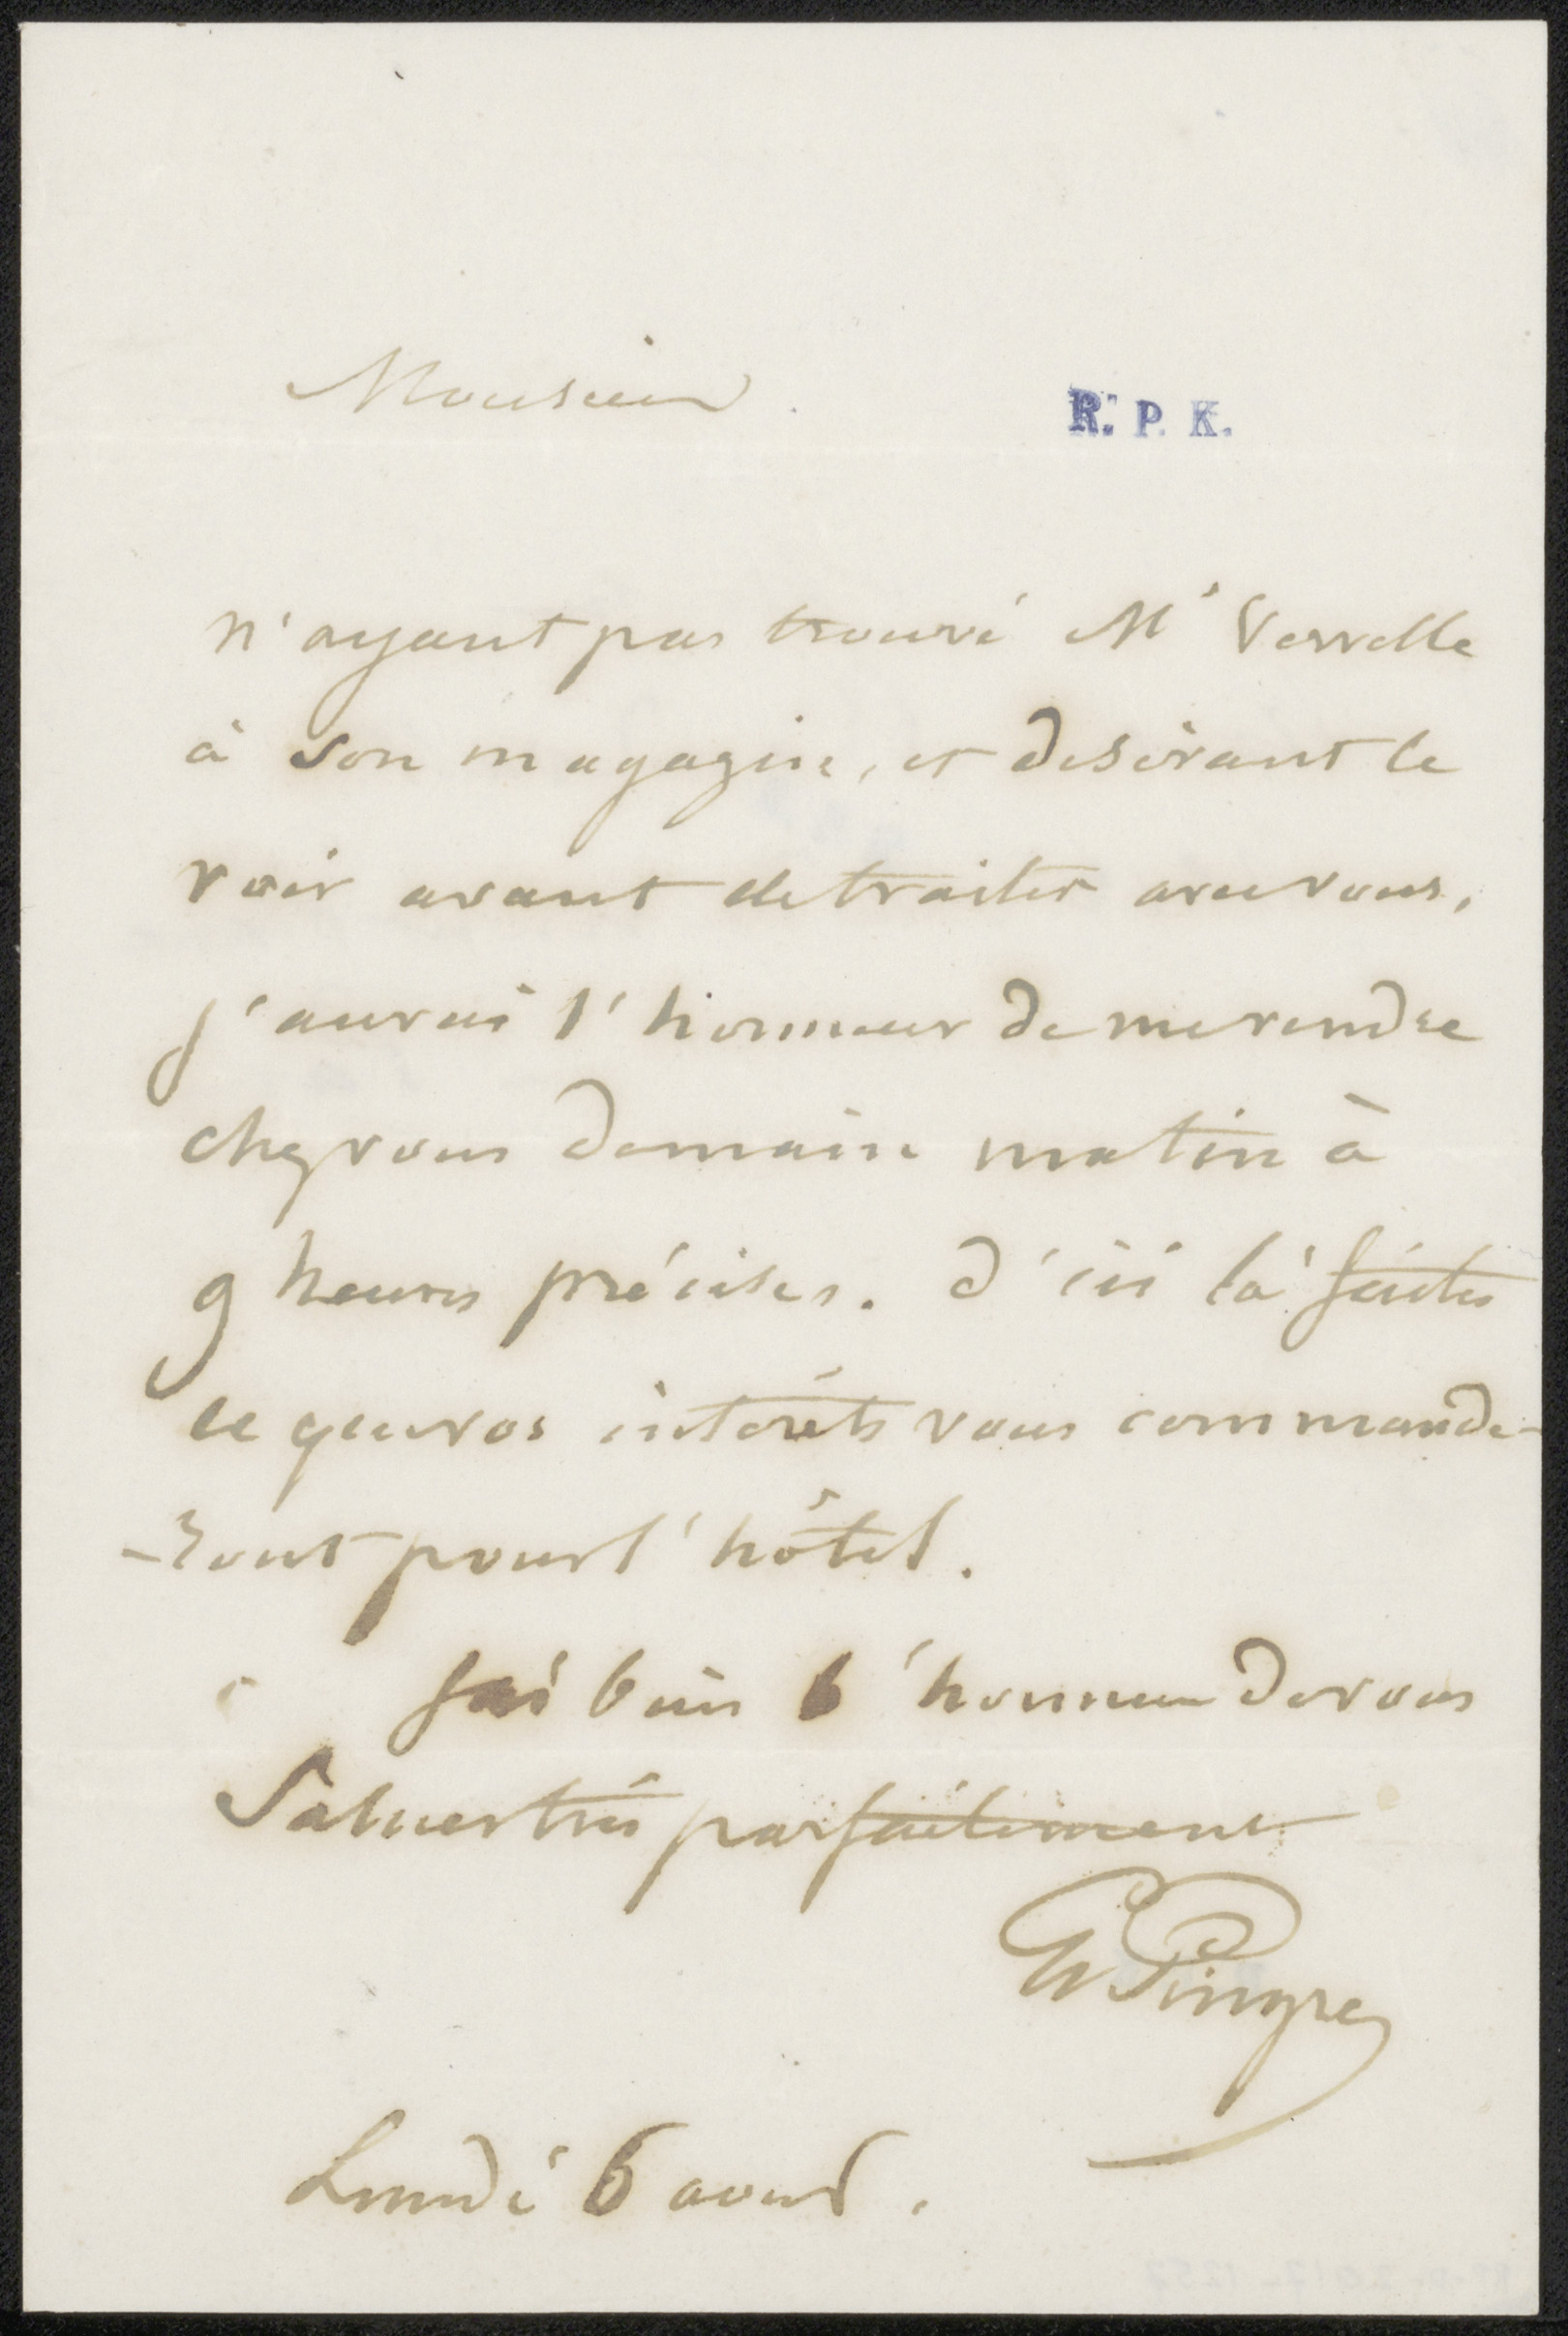 Monsieur.
R. P. K.
n'ayant pas trouvé Mr Verrelle
à son magazin, et desirant le
voir avant de traiter avec vous,
j'aurai l'honneur de me rendre
chez vous demain matin à
9 heures précises. d'ici là faites
ce que vos intérêts vous commande-
-ront pour l'hôtel.
J'ai bien l'honneur de vous
Saluer très parfaitement
Pingre
Lundi 6